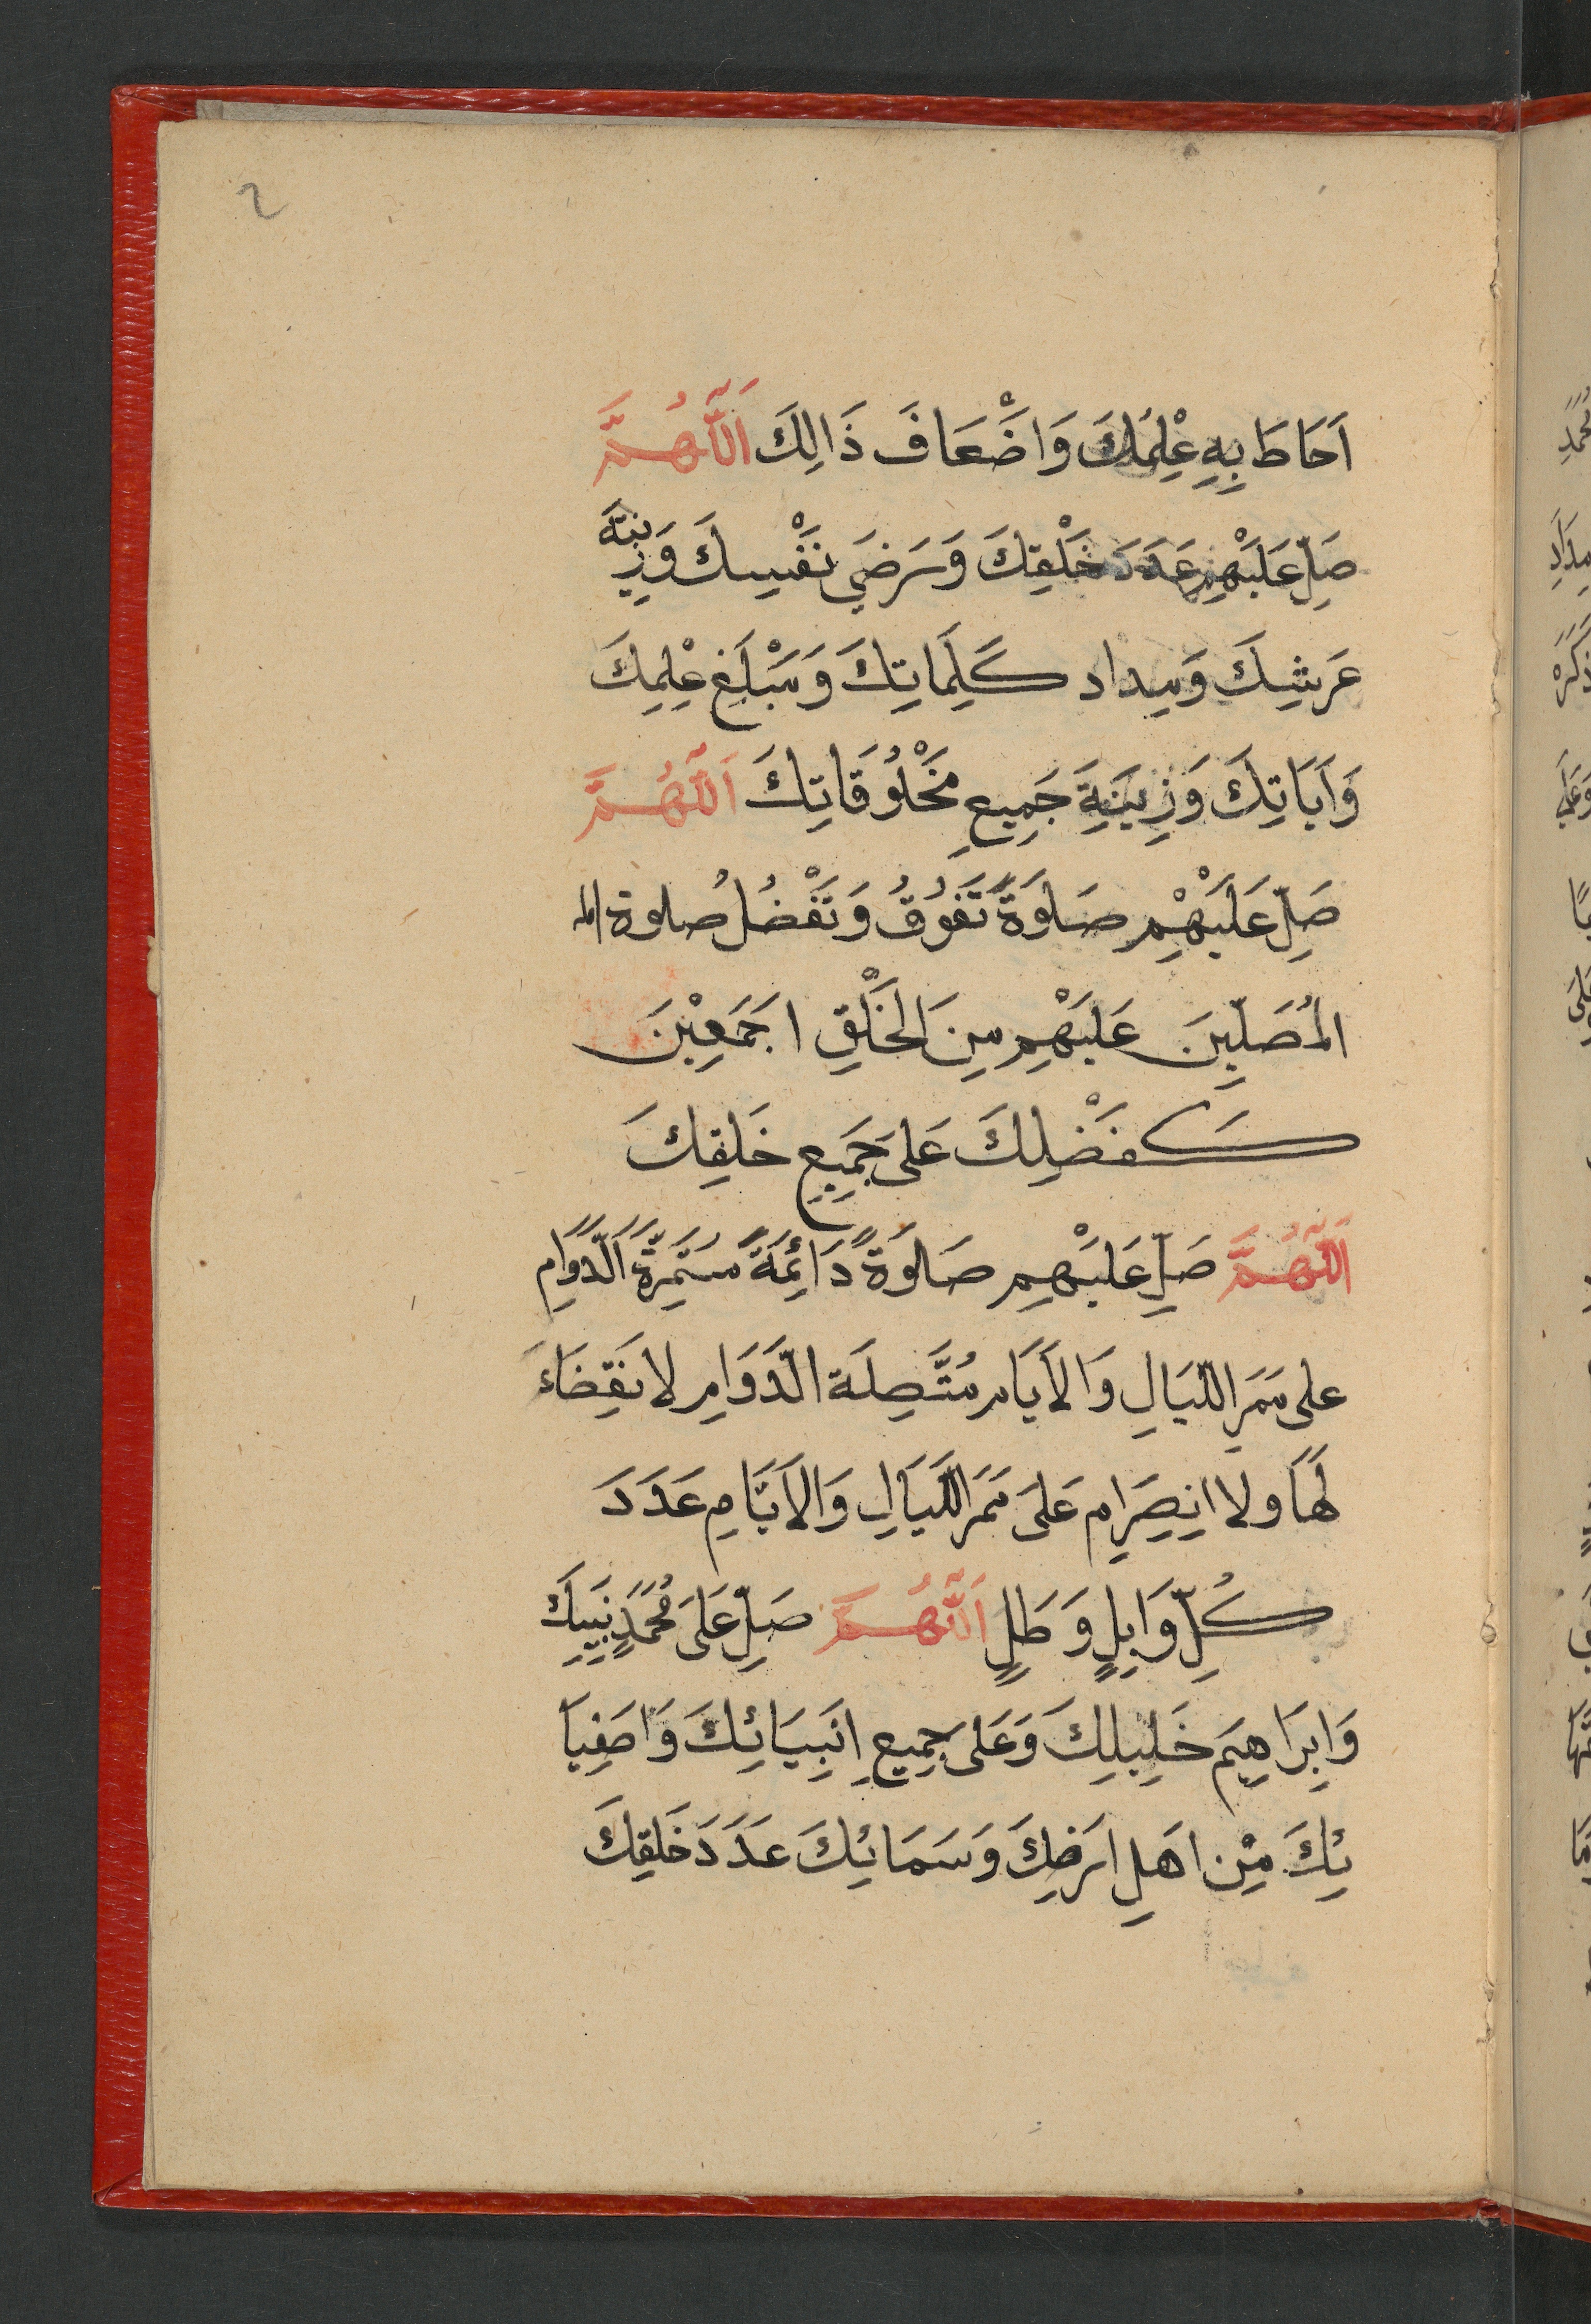 2
اَحَاطَ بِهِ عِلْمُكَ وَاَضْعَافَ ذَالِكَ اَللّٰهُمَّ
صَلِّ عَلَيْهِمْ عَدَدَ خَلْقِكَ وَرَضِيَ نَفْسِكَ وَزِينَةَ
عَرشِكَ وَمِداد كَلِمَاتِكَ وَمَبْلَغِ عِلْمِكَ
وَاَيَاتِكَ وَزِينَةِ جَمِيعِ مَخْلُوقَاتِكَ اَللّٰهُمَّ
صَلِّ عَلَيْهِمْ صَلَوةً تَفُوقُ وَتَفْضُلُ صلوة الم
المُصَلِّينَ عَلَيْهِمْ مِنَ الخَلْقِ اجَمَعِيْنَ
كَفَضْلِكَ عَلىَ جَمِيعِ خَلقِكَ
اَللّٰهُمَّ صَلِّ عَلَيْهِم صَلَوةً دَائِمَةً مستَمِرَّةَ الدَّوَامِ
على مَمَرِ اللّيَالِ وَالاَيَام مُتَّصِلَة الدَّوَامِ لا نقِضَاءَ
لَهَا ولا انِصِرَام عَلىَ مَمَر اللَّيَالِ وَالاَيَّامِ عَدَدَ
كُلِّ وَابِلٍ وَطَلٍ اَللّٰهُمَّ صَلِّ عَلىَ مُحَمَّدٍ نَبِيِكَ
وَاِبرَاهِيَم خَلِيلِكَ وَعَلىَ جَمِيعِ انَبِيَائِكَ وَاصَفِيَا
ئِكَ مِنْ اهَلِ ارَضِكَ وَسَمَائِكَ عَدَدَ خَلقِكَ